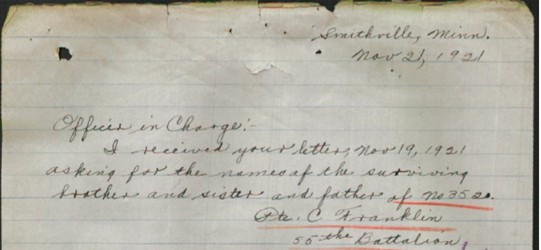 Smithville, Minn.
Nov 21, 1921
Officer in Charge:-
I received your letter, Nov 19, 1921
asking for the names of the surviving
brother and sister and father of No 3520.
Pte. C Franklin
55 the Battalion,